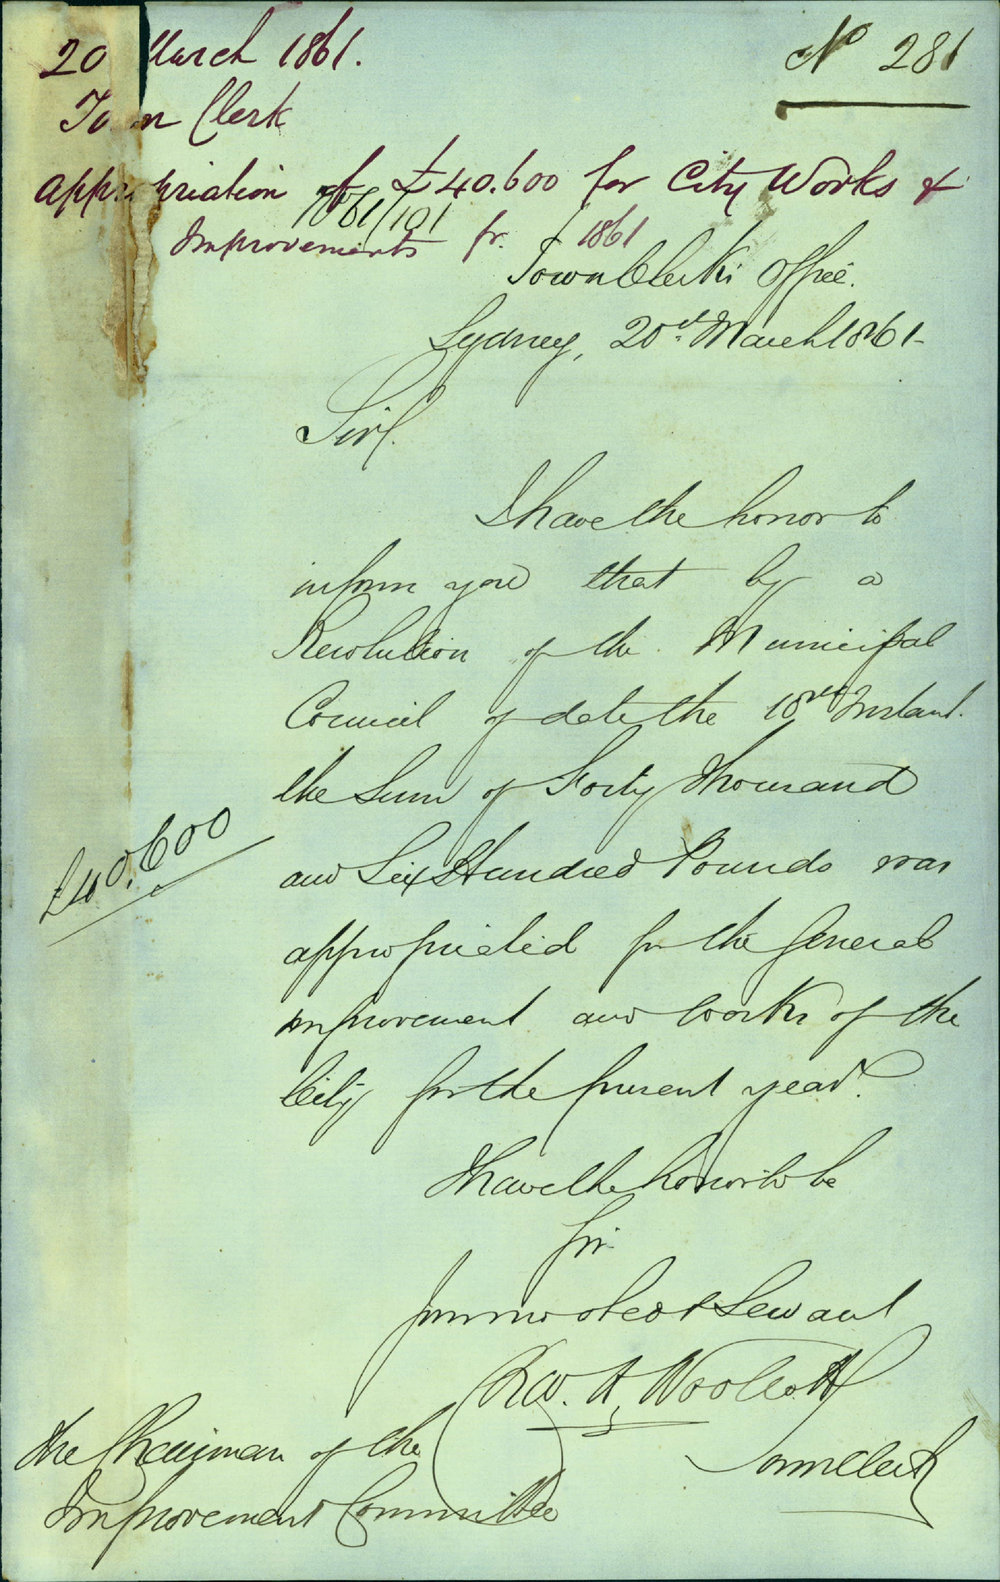 20 March 1861.
No 281
Town Clerk
Appropriation of £40.600 for City Works &
1861/101
Improvements fr. 1861
Town Clerk's Office.
Sydney, 20th March 1861-
Sir/.
I have the honor to
inform you that by a
Resolution of the Municipal
Council of date the 18th Instant.
the Sum of Forty Thousand
£40.600
and Six Hundred Pounds was
appropriated for the general
improvement and Works of the
City for the present year.
I have the honor to be
Sir
Your most obedt Servant
Woolcott
Town Clerk
The Chairman of the
Improvement Committee